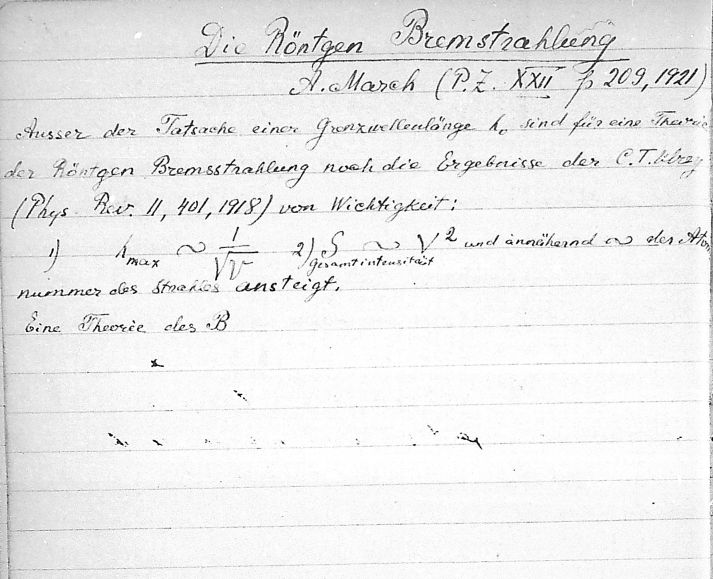 Die Röntgen Bremstrahlung
A. March (P.Z. XXII p 209, 1921)
Ausser der Tatsache einer Grenzwellenlänge λ₀ sind für eine Theorie
der Röntgen Bremsstrahlung noch die Ergebnisse der C.T. Ulrey
(Phys. Rev. 11, 401, 1918) von Wichtigkeit:
1) λmax ~ 1/√V 2) S Gesamtintensität ~ V² und annähernd ~ der Atom
nummer des Strahles ansteigt.
Eine Theorie des B